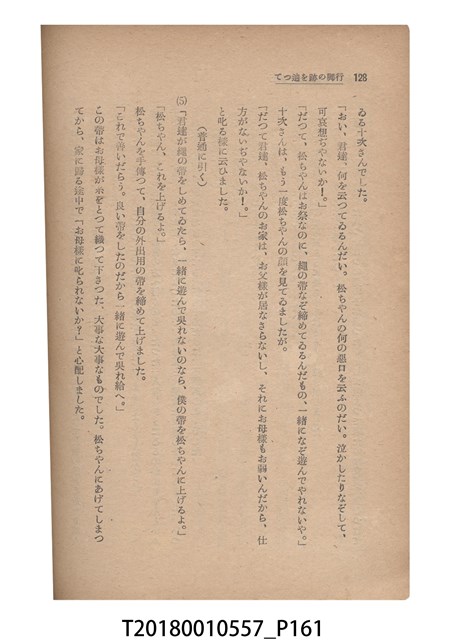 行脚の跡を追つて 128
ゐる十次さんでした。
「おい、君達、何を云つてゐるんだい。松ちやんの何の惡口を云ふのだい。泣かしたりなぞして、
可哀想ぢやないか!。」
「だつて、松ちやんはお祭なのに、繩の帶なぞ締めてゐるんだもの、一緒になぞ遊んでやれないや。」
十次さんは、もう一度松ちやんの顔を見てゐましたが。
「だつて君達、松ちやんのお家は、お父樣が居なさらないし、それにお母樣もお弱いんだから、仕
方がないぢやないか!。」
と叱る樣に云ひました。
(普通に引く)
(5) 「君達が繩の帶をしめてゐたら、一緒に遊んで吳れないのなら、僕の帶を松ちやんに上げるよ。」
「松ちやん、これを上げるよ。」
松ちやんを手傳つて、自分の外出用の帶を締めて上げました。
「これで善いだらう。良い帶をしたのだから一緒に遊んで吳れ給へ。」
この帶はお母樣が糸をとつて織つて下さつた、大事な大事なものでした。松ちやんにあげてしまつ
てから、家に歸る途中で「お母樣に叱られないか?」と心配しました。
T20180010557_P161